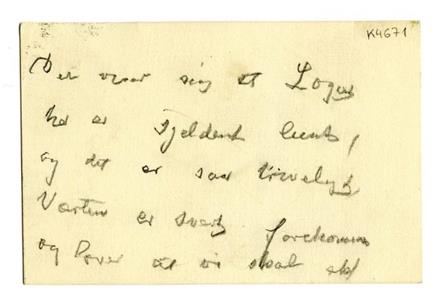 K4671
Det viser sig at Logus
her er sjeldent lunt,
og det er saa triveligt
Værten er svært forekommen
og lover at vi skal